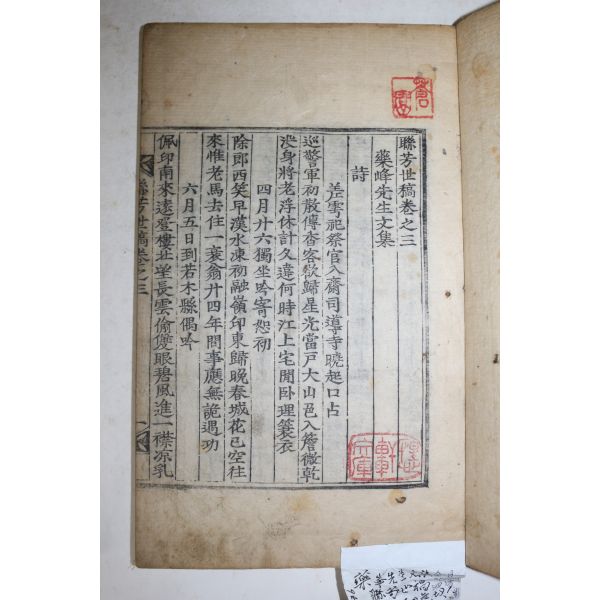 聯芳世稿卷之三
藥峰先生文集
詩
差雩祀祭官入齋司導寺曉起口占
巡警軍初散傳呇客欲歸星光當戶大山邑入簷微乾
沒身將老浮休計久違何時江上宅閒卧理簑衣
四月廿六獨坐吟寄恕初
除郞西笑早漢水凍初融嶺印東歸晚春城花已空往
來惟老馬去住一衰翁廿四年間事應無詭遇功
六月五日到若木縣偶吟
佩印南來遠登樓北望長雲偷雙眼碧風進一襟凉乳
聯芳世稿卷之三
一